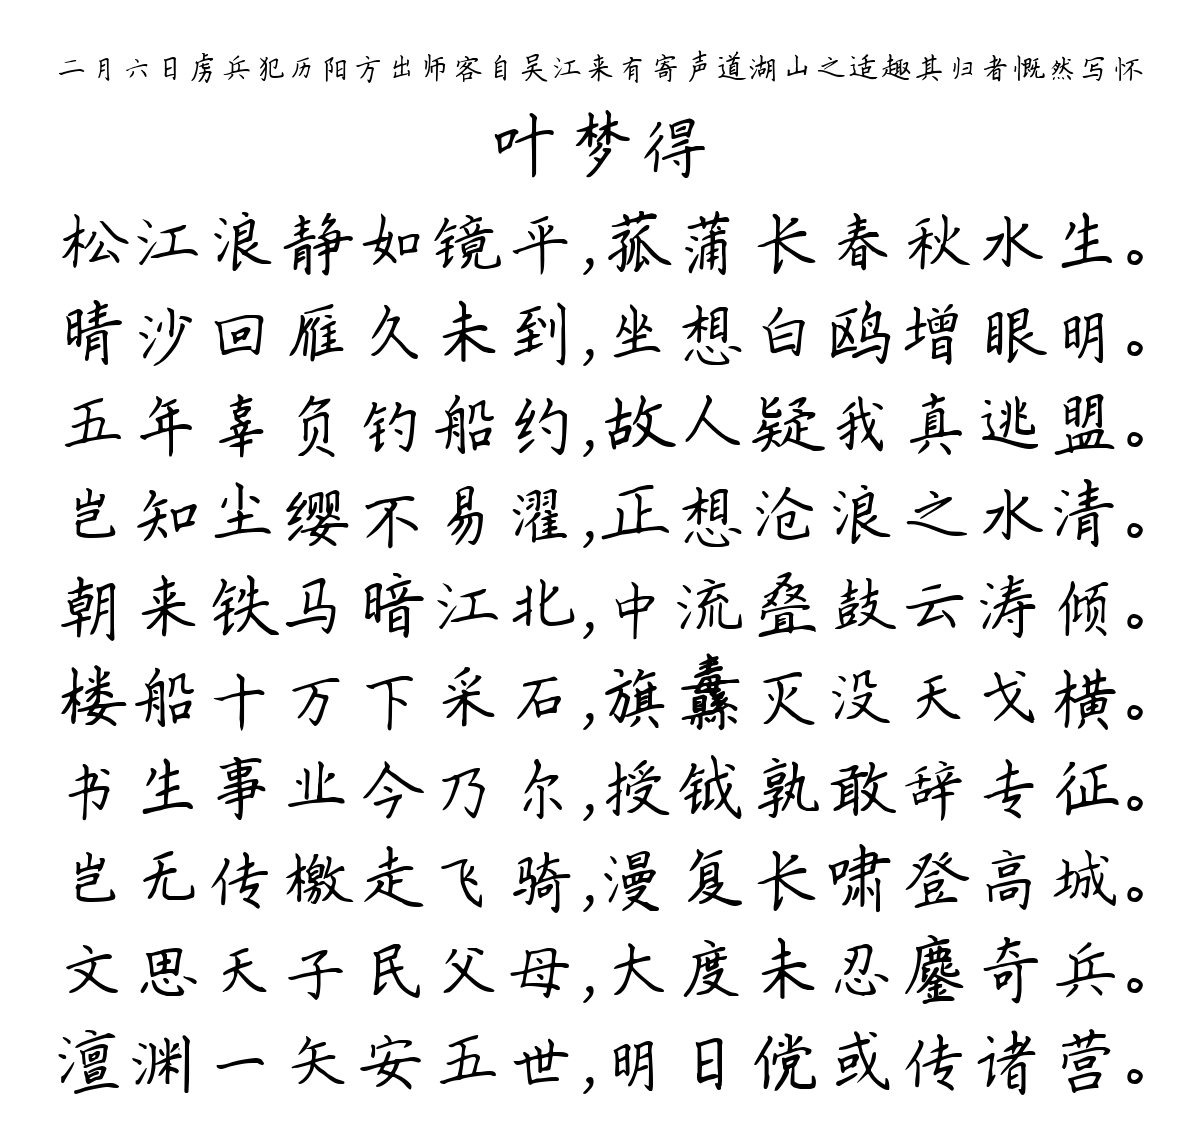 二月六日虏兵犯历阳方出师客自吴江来有寄声道湖山之适趣其归者慨然写怀
叶梦得
松江浪静如镜平,菰蒲长春秋水生。
晴沙回雁久未到,坐想白鸥增眼明。
五年辜负钓船约,故人疑我真逃盟。
岂知尘缨不易濯,正想沧浪之水清。
朝来铁马暗江北,中流叠鼓云涛倾。
楼船十万下采石,旗纛灭没天戈横。
书生事业今乃尔,授钺孰敢辞专征。
岂无传檄走飞骑,漫复长啸登高城。
文思天子民父母,大度未忍鏖奇兵。
澶渊一矢安五世,明日傥或传诸营。